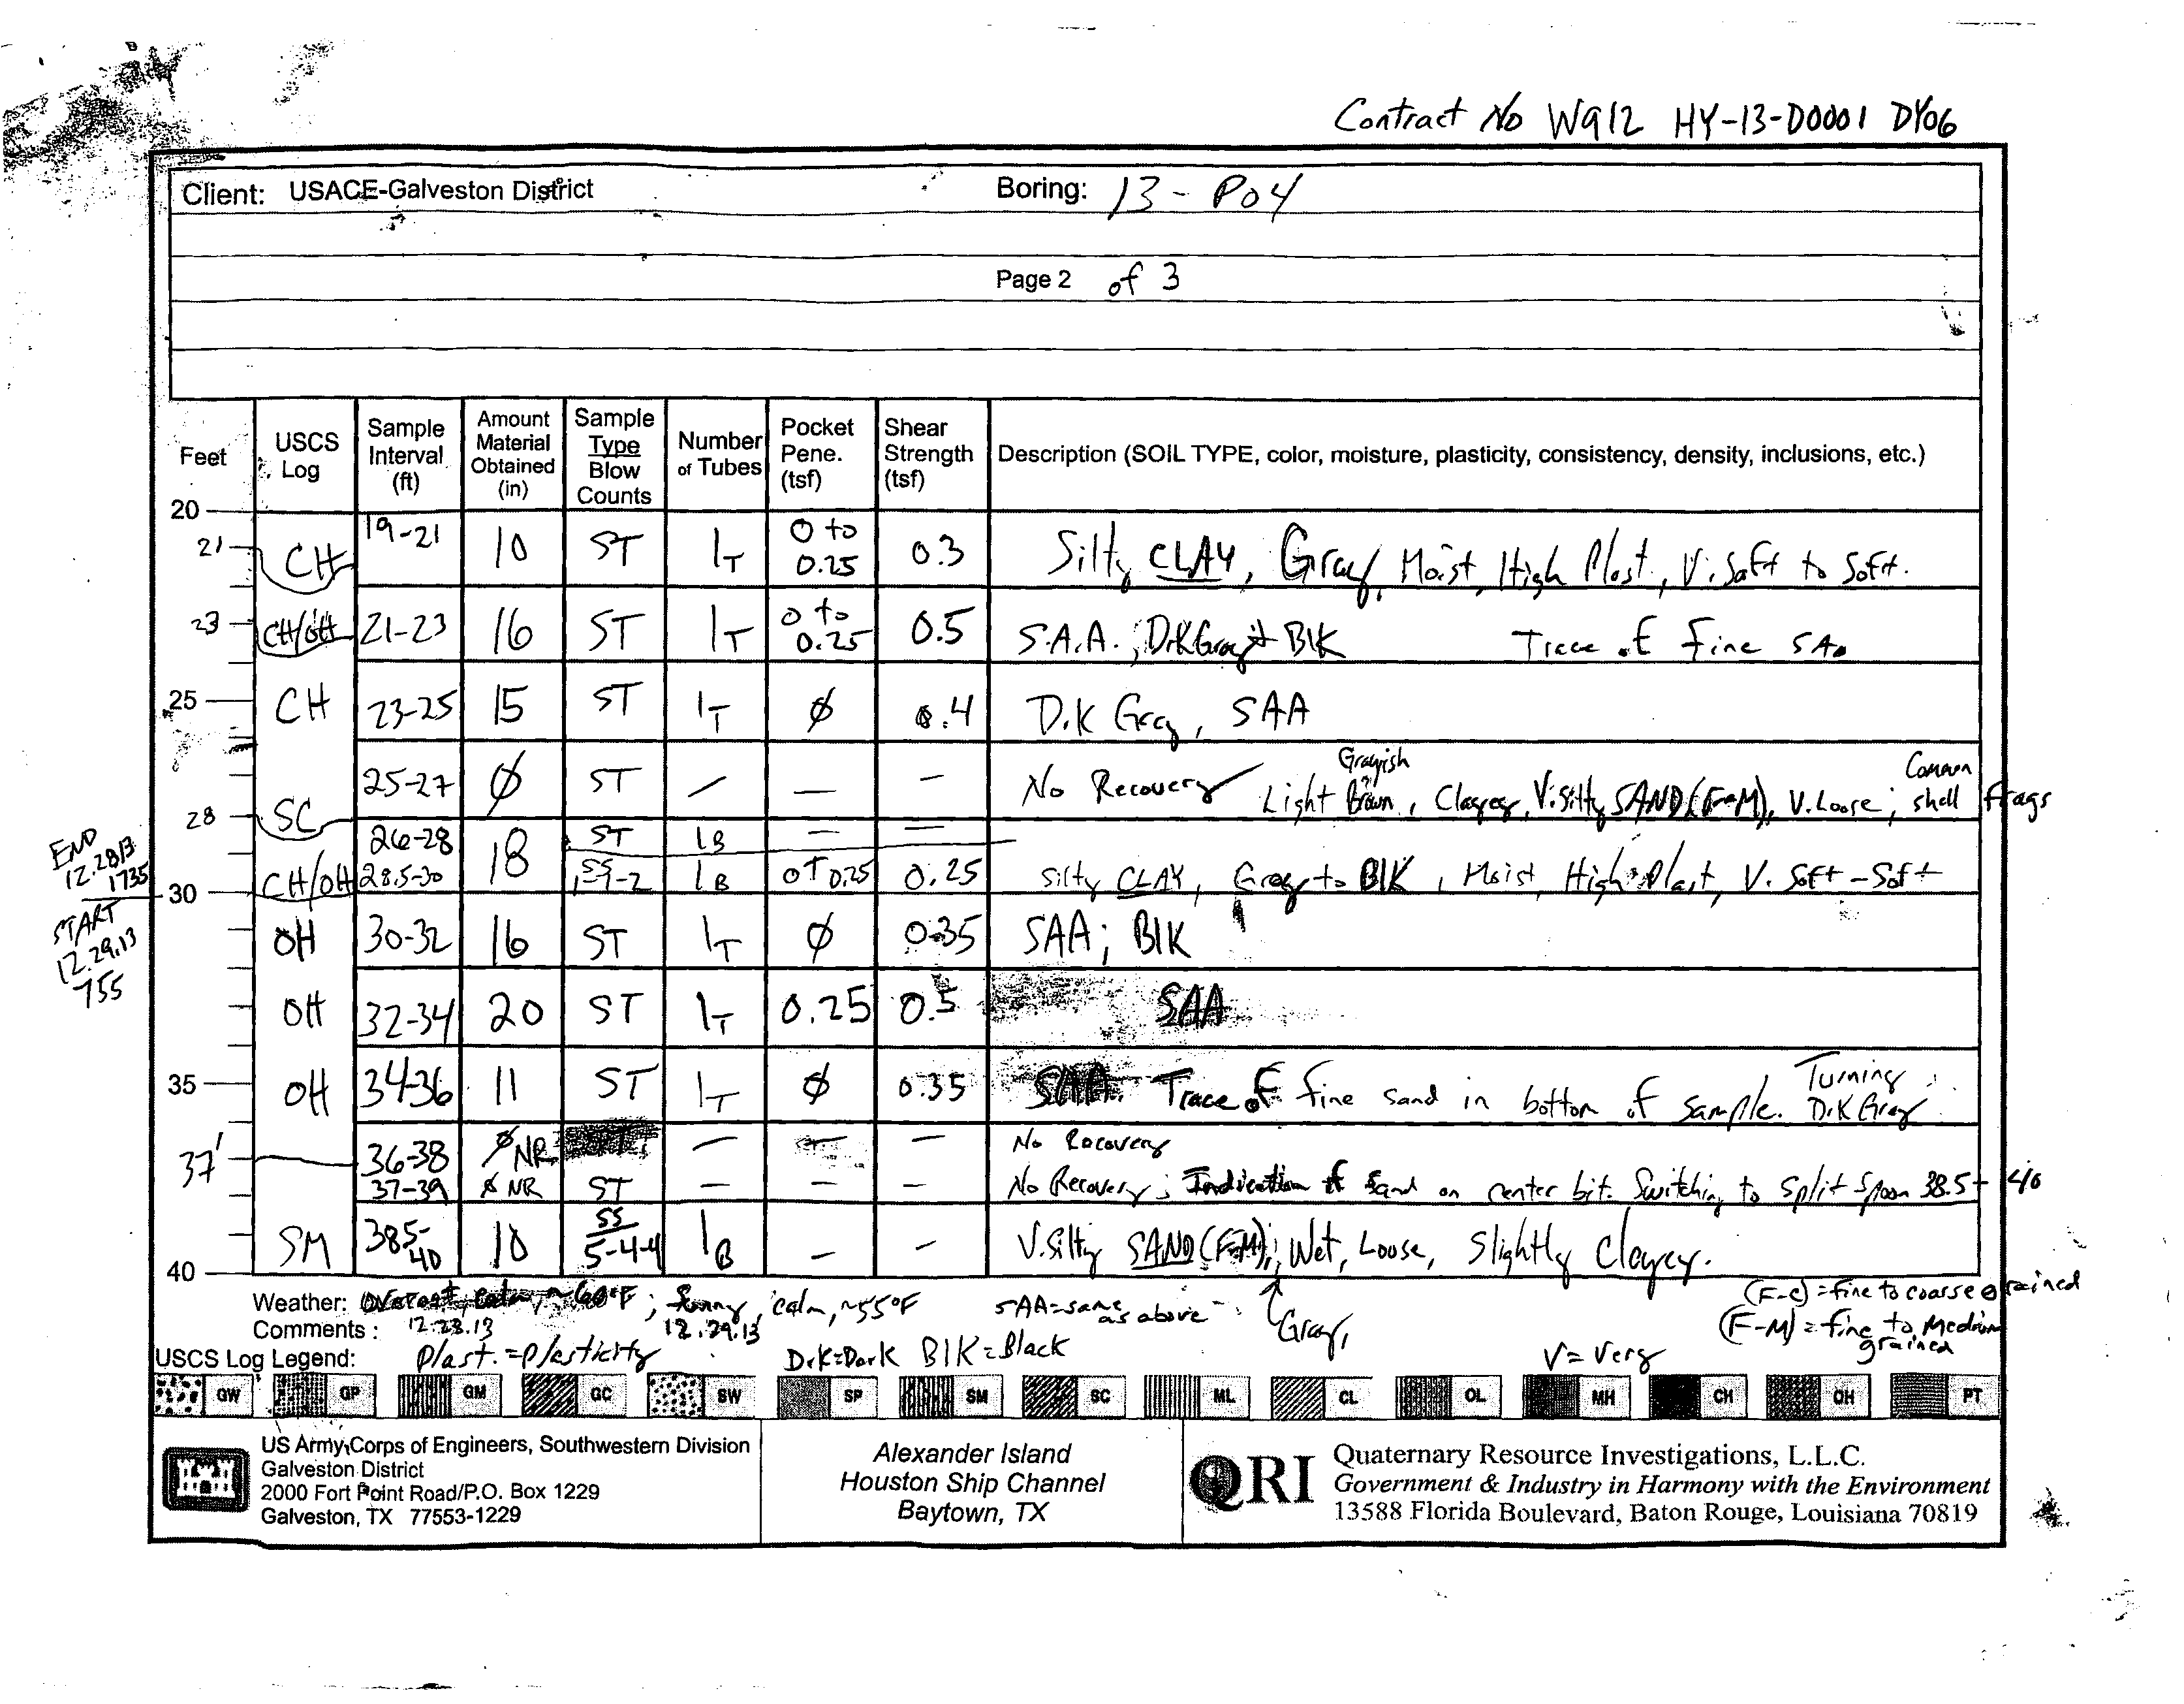 Contract No W912 HY-13-D0001 DY06
Client: USACE-Galveston District Boring: 13-P04
Page 2 of 3
Feet USCS Log Sample Interval (ft) Amount Material Obtained (in) Sample Type Blow Counts Number of Tubes Pocket Pene. (tsf) Shear Strength (tsf) Description (SOIL TYPE, color, moisture, plasticity, consistency, density, inclusions, etc.)
20
21 CH 19-21 10 ST 1T 0 to 0.25 0.3 Silty CLAY, Gray, Moist, High Plast., V. Soft to Soft.
23 CH/OH 21-23 16 ST 1T 0 to 0.25 0.5 S.A.A.; DrK Gray + BlK Trace of Fine SA.
25 CH 23-25 15 ST 1T Ø 0.4 D.K Gray, SAA
25-27 Ø ST — — — No Recovery
28 SC Light Grayish Brown, Clayey, V. Silty SAND (F-M), V. Loose; Common shell frags
26-28 18 ST 1B — —
END 12.28.13 1735
CH/OH 28.5-30 SS 1B 0 T 0.25 0.25 Silty CLAY, Gray to BlK, Moist, High Plast, V. Soft - Soft
30
START 12.29.13 755
OH 30-32 16 ST 1T Ø 0.35 SAA; BlK
OH 32-34 20 ST 1T 0.25 0.5 SAA
35 OH 34-36 11 ST 1T Ø 0.35 SAA. Trace of fine sand in bottom of sample. Turning DrK Gray
36-38 Ø NR — — — No Recovery
37' 37-39 Ø NR ST — — — No Recovery; Indication of Sand on center bit. Switching to Split Spoon 38.5 - 40
SM 38.5-40 10 SS 5-4-4 1B — — V. Silty SAND (F-M); Gray, Wet, Loose, Slightly Clayey.
40
Weather: Overcast, calm, ~60°F; Sunny, calm, ~55°F SAA=same as above (F-C)=fine to coarse grained
Comments: 12.28.13 12.29.13 (F-M)=fine to Medium grained
USCS Log Legend: Plast.=plasticity DrK=Dark BlK=Black V=Very
GW GP GM GC SW SP SM SC ML CL OL MH CH OH PT
US Army Corps of Engineers, Southwestern Division
Galveston District
2000 Fort Point Road/P.O. Box 1229
Galveston, TX 77553-1229
Alexander Island
Houston Ship Channel
Baytown, TX
QRI
Quaternary Resource Investigations, L.L.C.
Government & Industry in Harmony with the Environment
13588 Florida Boulevard, Baton Rouge, Louisiana 70819